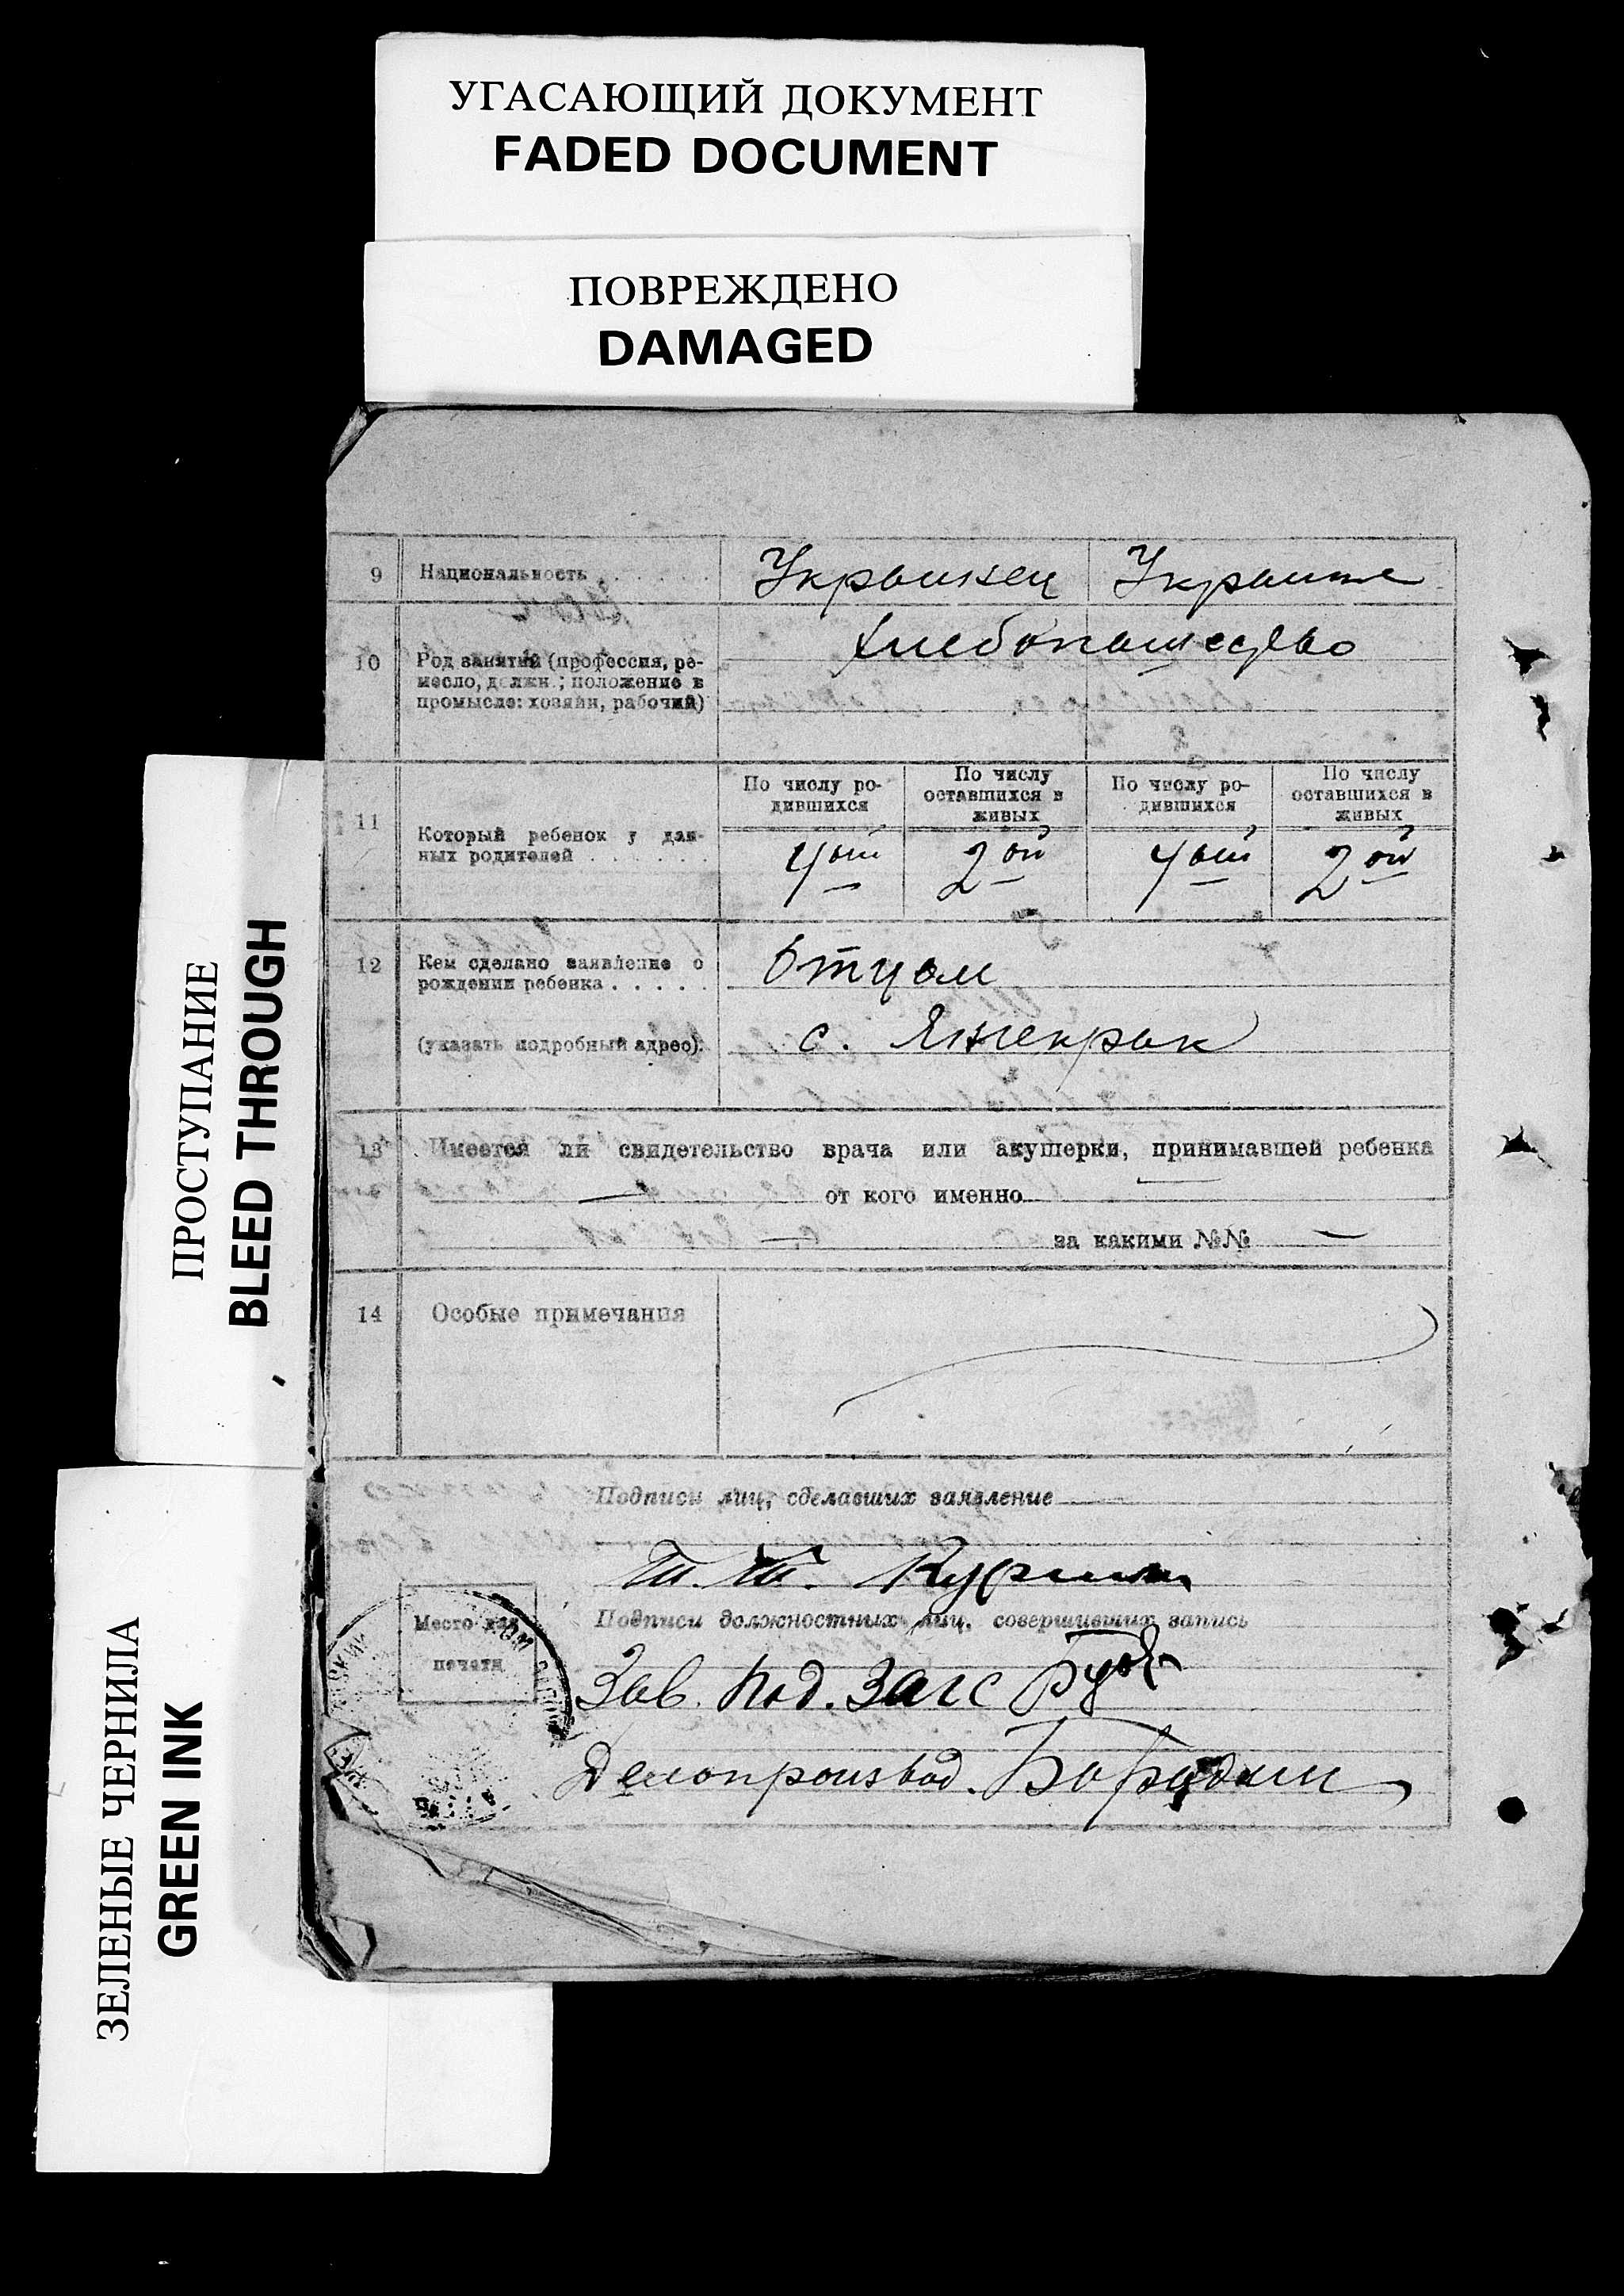 УГАСАЮЩИЙ ДОКУМЕНТ
FADED DOCUMENT
ПОВРЕЖДЕНО
DAMAGED
ПРОСТУПАНИЕ
BLEED THROUGH
ЗЕЛЕНЫЕ ЧЕРНИЛА
GREEN INK
9 Национальность . . . . . . Украинец Украинка
10 Род занятий (профессия, ре- Хлебопашество
месло, должн.; положение в
промысле: хозяин, рабочий)
По числу ро- По числу По числу ро- По числу
дившихся оставшихся в дившихся оставшихся в
живых живых
11 Который ребенок у дан-
ных родителей . . . . . . 4ый 2ой 4ый 2ой
12 Кем сделано заявление о Отцом
рождении ребенка . . . . .
(указать подробный адрес). с.
13 Имеется ли свидетельство врача или акушерки, принимавшей ребенка
— от кого именно —
— за какими №№ —
14 Особые примечания
Подписи лиц, сделавших заявление
Место для
печати
Подписи должностных лиц, совершивших запись
Зав. Под. Загс
Делопроизвод.